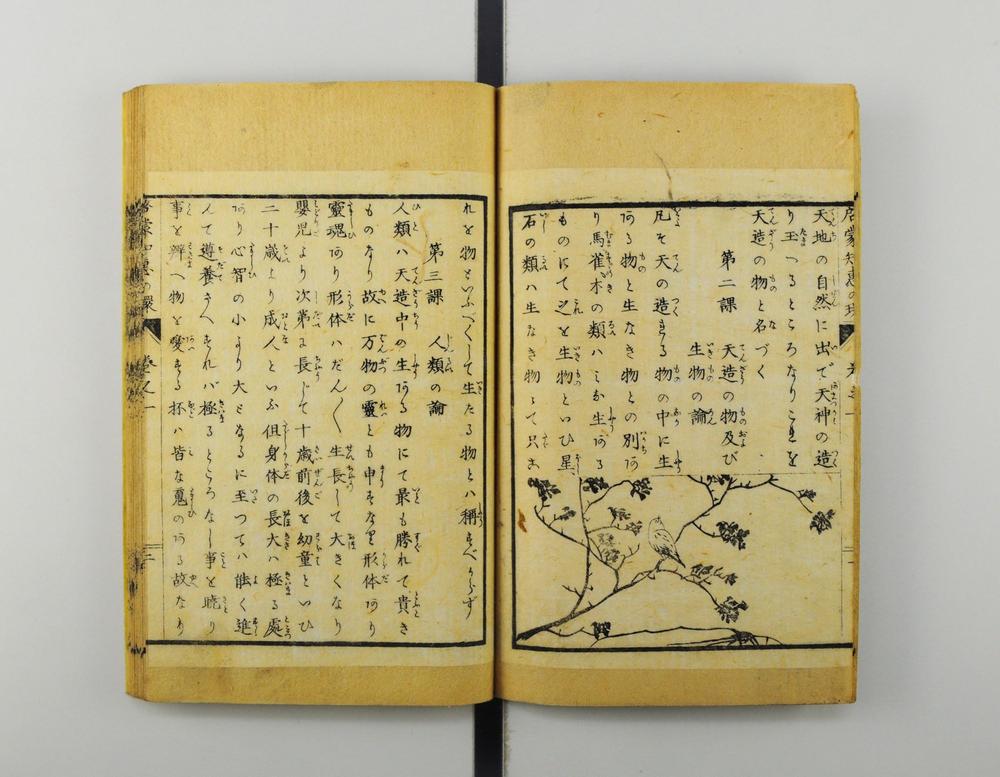 天地の自然に出で天神の造
り玉へるところなりこれを
天造の物と名づく
第二課 天造の物及び
生物の論
凡そ天の造れる物の中に生
ある物と生なき物との別あ
り馬雀木の類ハミな生ある
ものにて之を生物といひ星
石の類ハ生なき物にて只こ
れを物といふべくして生たる物とハ稱すべからず
第三課 人類の論
人類ハ天造中の生ある物にて最も勝れて貴き
ものなり故に万物の靈とも申すなり形体あり
靈魂あり形体ハだん〱生長して大きくなり
嬰児より次第に長じて十歳前後を幼童といひ
二十歳より成人といふ但身体の長大ハ極る處
あり心智の小より大となるに至つてハ能く進
んで導養さへすれバ極るところなし事を暁り
事を辨へ物を愛する抔ハ皆な魂のある故なり